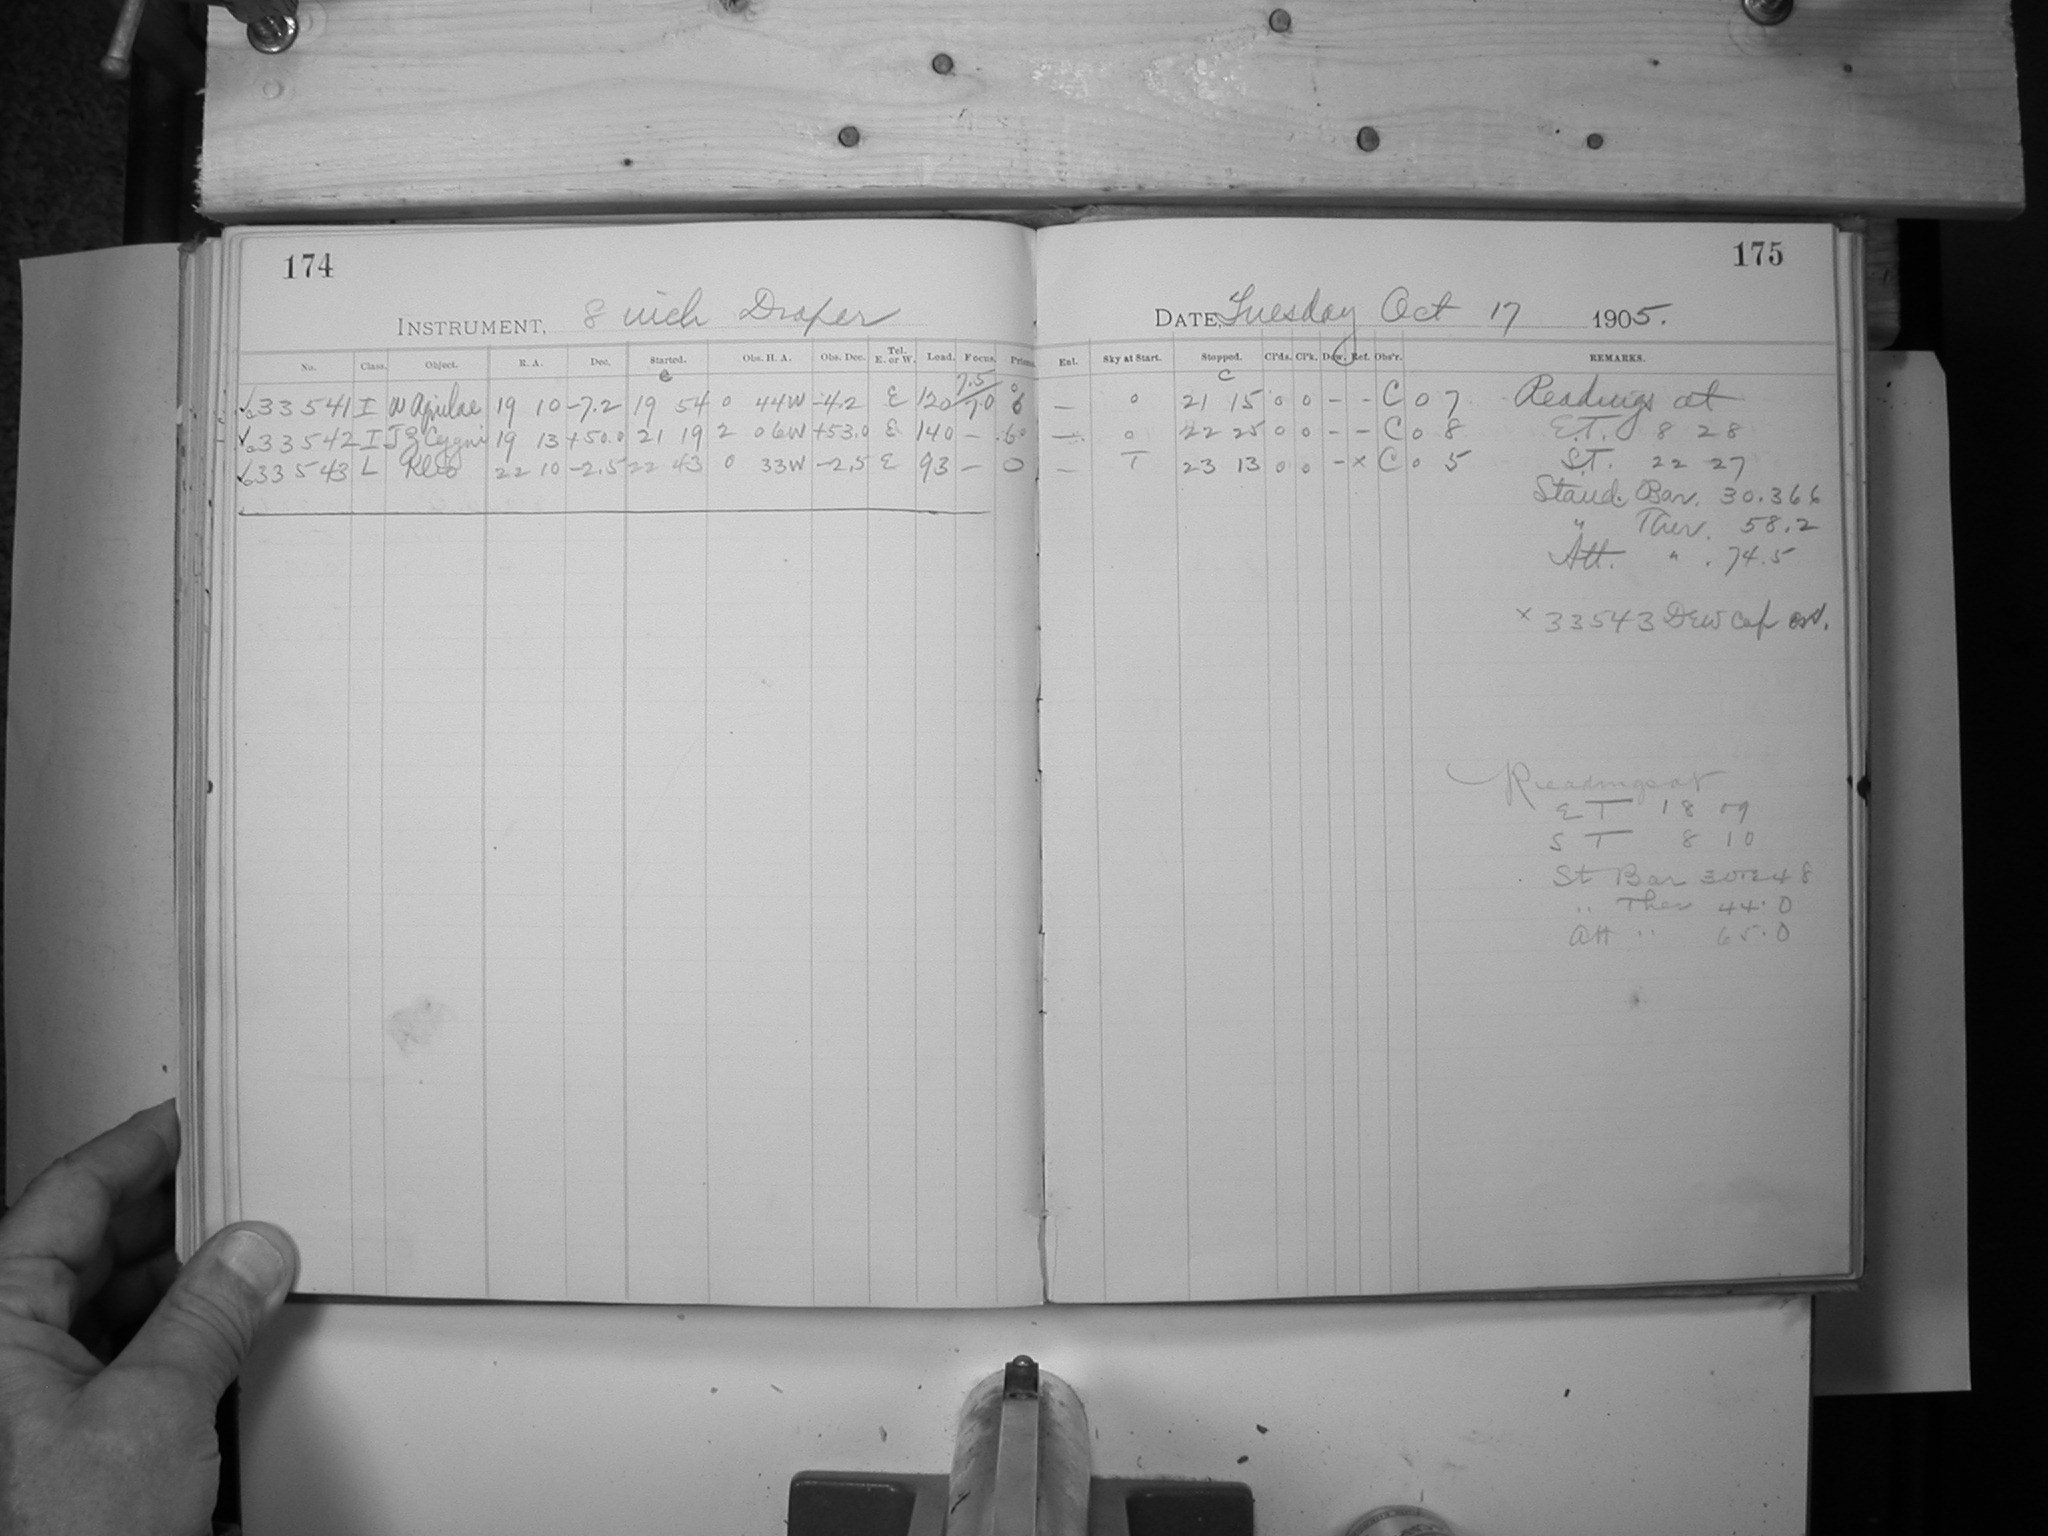 174
INSTRUMENT, 8 inch Draper
No. Class. Object. R. A. Dec. Started. Obs. H. A. Obs. Dec. Tel. E. or W. Lead. Focus. Prisms.
e
33541 I W Aquilae 19 10 -7.2 19 54 0 44W -4.2 E 120 7.5/7.0 8
33542 I Cygni 19 13 +50.0 21 19 2 06W +53.0 E 140 – 60
33543 L 22 10 -2.5 22 43 0 33W -2.5 E 93 – 0
175
DATE, Tuesday Oct 17 1905.
Ent. Sky at Start. Stopped. Cl'ds. Cl'k. Dew. Ref. Obs'r. REMARKS.
c
– 0 21 15 0 0 – – C 0 7 Readings at
– 0 22 25 0 0 – – C 0 8 E.T. 8 28
– T 23 13 0 0 – x C 0 5 S.T. 22 27
Stand. Bar. 30.366
" Ther. 58.2
Att. " . 74.5
x 33543 Dew cap on.
Readings at
E T 18 09
S T 8 10
St Bar 30.248
" Ther 44.0
Att " 65.0